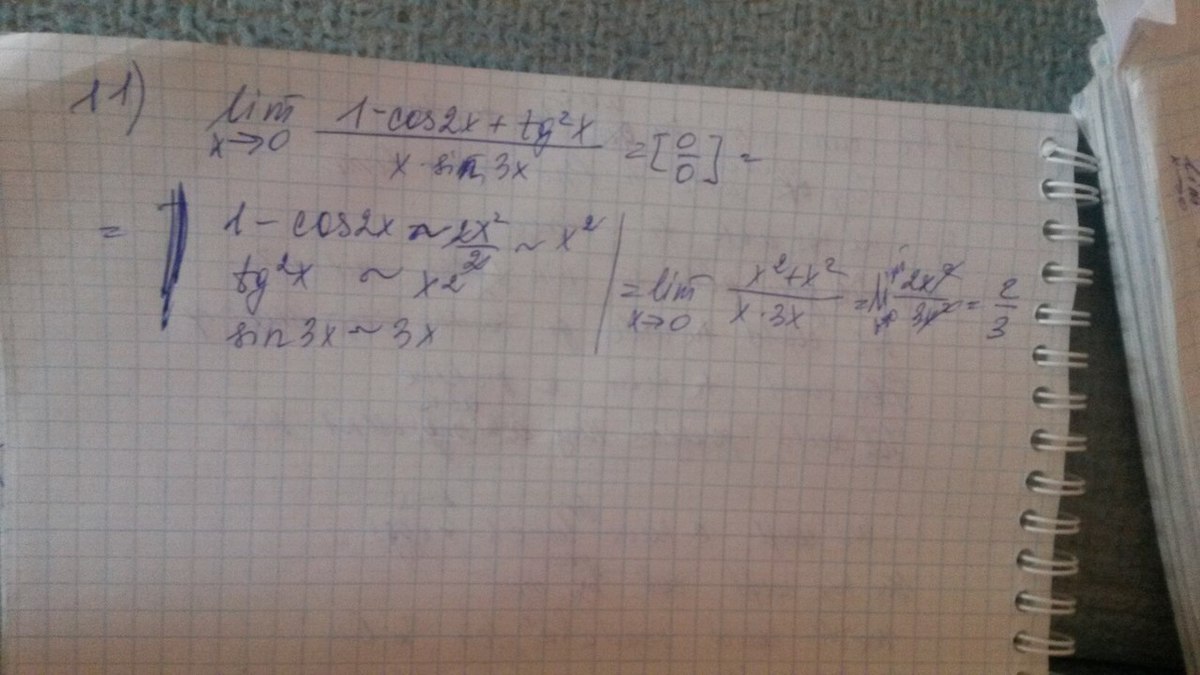 11) lim x→0 (1-cos2x + tg²x)/(x·sin 3x) = [0/0] =
= | 1-cos2x ~ 2x²/2 ~ x²
tg²x ~ x²
sin3x ~ 3x | = lim x→0 (x²+x²)/(x·3x) = lim x→0 2x²/3x² = 2/3